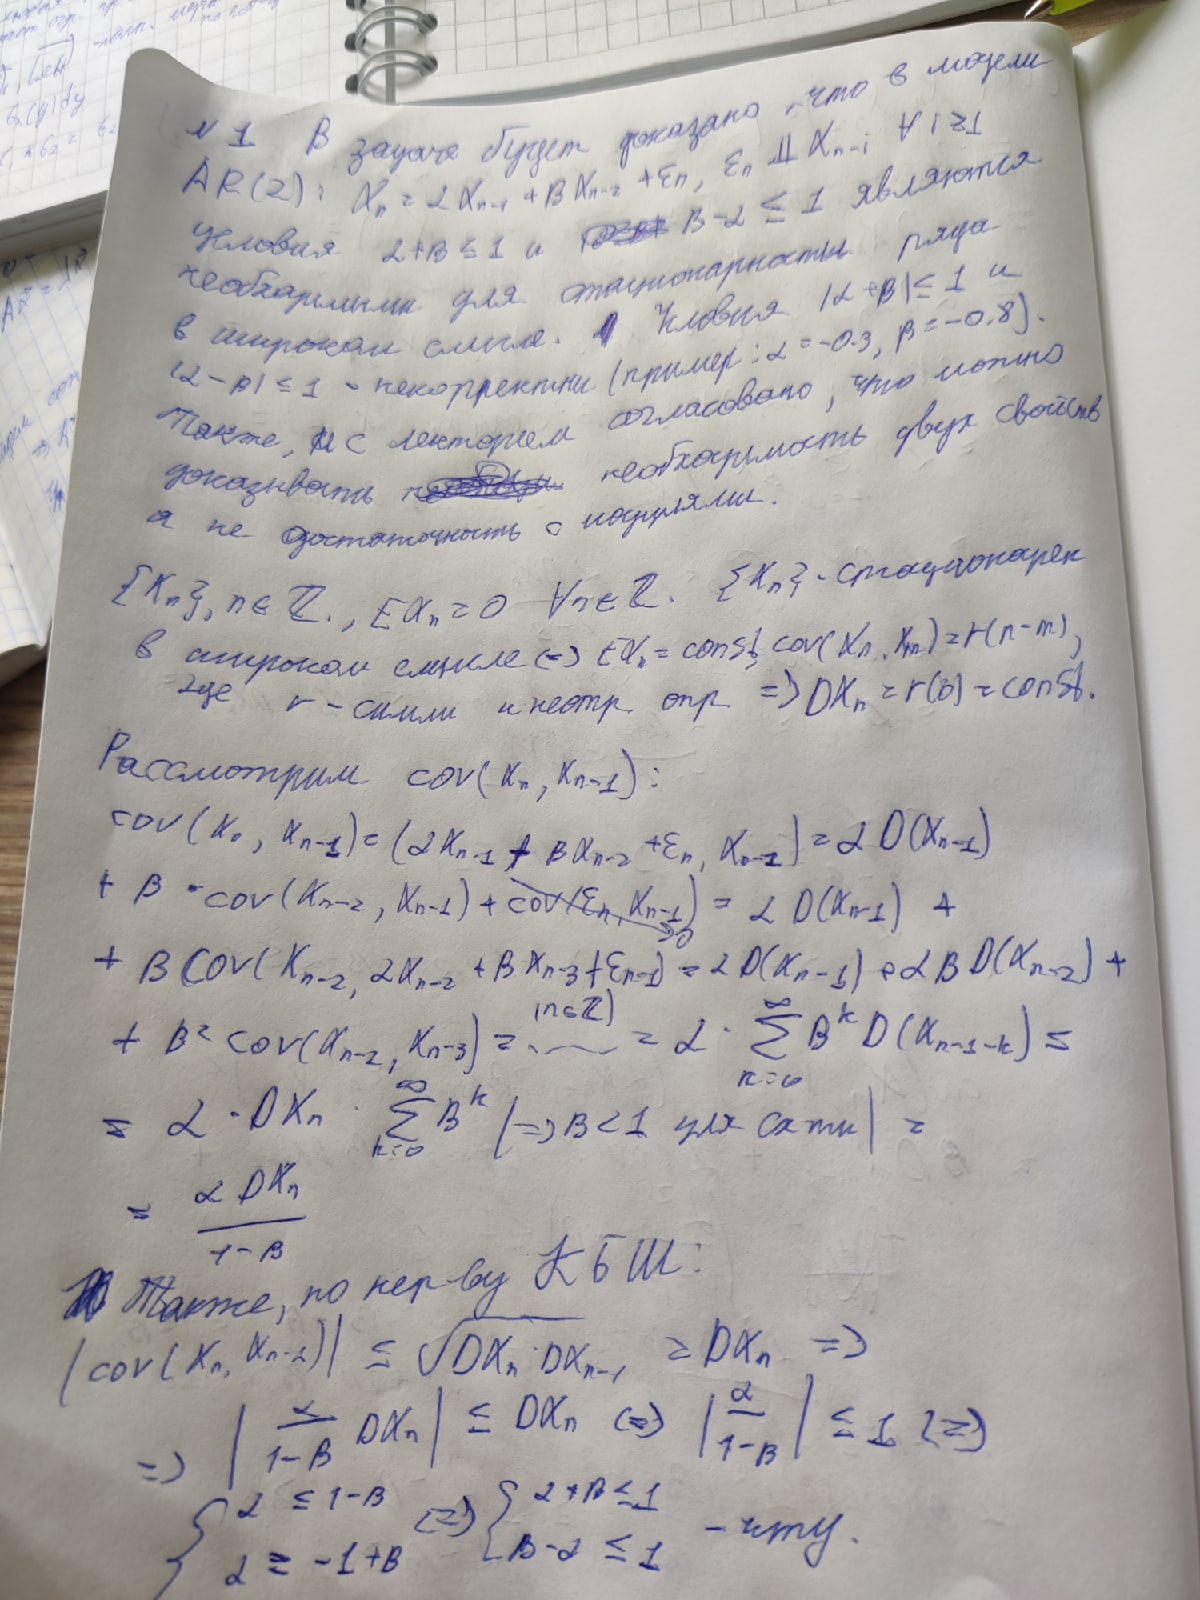 N 1 В задаче будет доказано, что в модели
AR(2): Xₙ = αXₙ₋₁ + βXₙ₋₂ + εₙ, εₙ ⫫ Xₙ₋ᵢ ∀ i≥1
условия α+β ≤ 1 и β-α ≤ 1 являются
необходимыми для стационарности ряда
в широком смысле. Условия |α+β| ≤ 1 и
|α-β| ≤ 1 - некорректны (пример: α = -0.3, β = -0.8).
Также, с лектором согласовано, что можно
доказывать необходимость двух свойств
а не достаточность с модулями.
{Xₙ}, n∈ℤ, EXₙ = 0 ∀n∈ℤ. {Xₙ} - стационарен
в широком смысле (=) EXₙ = const, cov(Xₙ, Xₘ) = r(n-m),
где r - симм и неотр. опр. => DXₙ = r(0) = const.
Рассмотрим cov(Xₙ, Xₙ₋₁):
cov(Xₙ, Xₙ₋₁) = (αXₙ₋₁ + βXₙ₋₂ + εₙ, Xₙ₋₁) = αD(Xₙ₋₁)
+ β · cov(Xₙ₋₂, Xₙ₋₁) + cov(εₙ, Xₙ₋₁) → 0 = αD(Xₙ₋₁) +
+ β cov(Xₙ₋₂, αXₙ₋₂ + βXₙ₋₃ + εₙ₋₁) = αD(Xₙ₋₁) + αβD(Xₙ₋₂) +
+ β² cov(Xₙ₋₂, Xₙ₋₃) = (n∈ℤ) ... = α · ∑ₖ₌₀^∞ βᵏ D(Xₙ₋₁₋ₖ) =
= α · DXₙ · ∑ₖ₌₀^∞ βᵏ |=> β<1 для сх-ти| =
= αDXₙ / (1-β)
Также, по нер-ву КБШ:
|cov(Xₙ, Xₙ₋₁)| ≤ √(DXₙ · DXₙ₋₁) = DXₙ =>
=> |α/(1-β) DXₙ| ≤ DXₙ (=) |α/(1-β)| ≤ 1 (=)
{ α ≤ 1-β (=) { α+β ≤ 1
{ α ≥ -1+β { β-α ≤ 1 - чту.